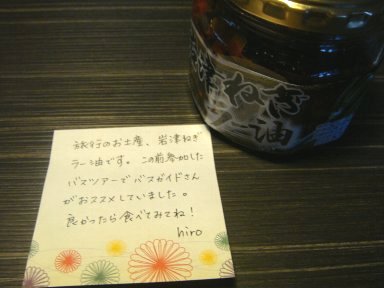 岩津ねぎ
ラー油
旅行のお土産、岩津ねぎ
ラー油です。この前参加した
バスツアーでバスガイドさん
がおススメしていました。
良かったら食べてみてね!
hiro